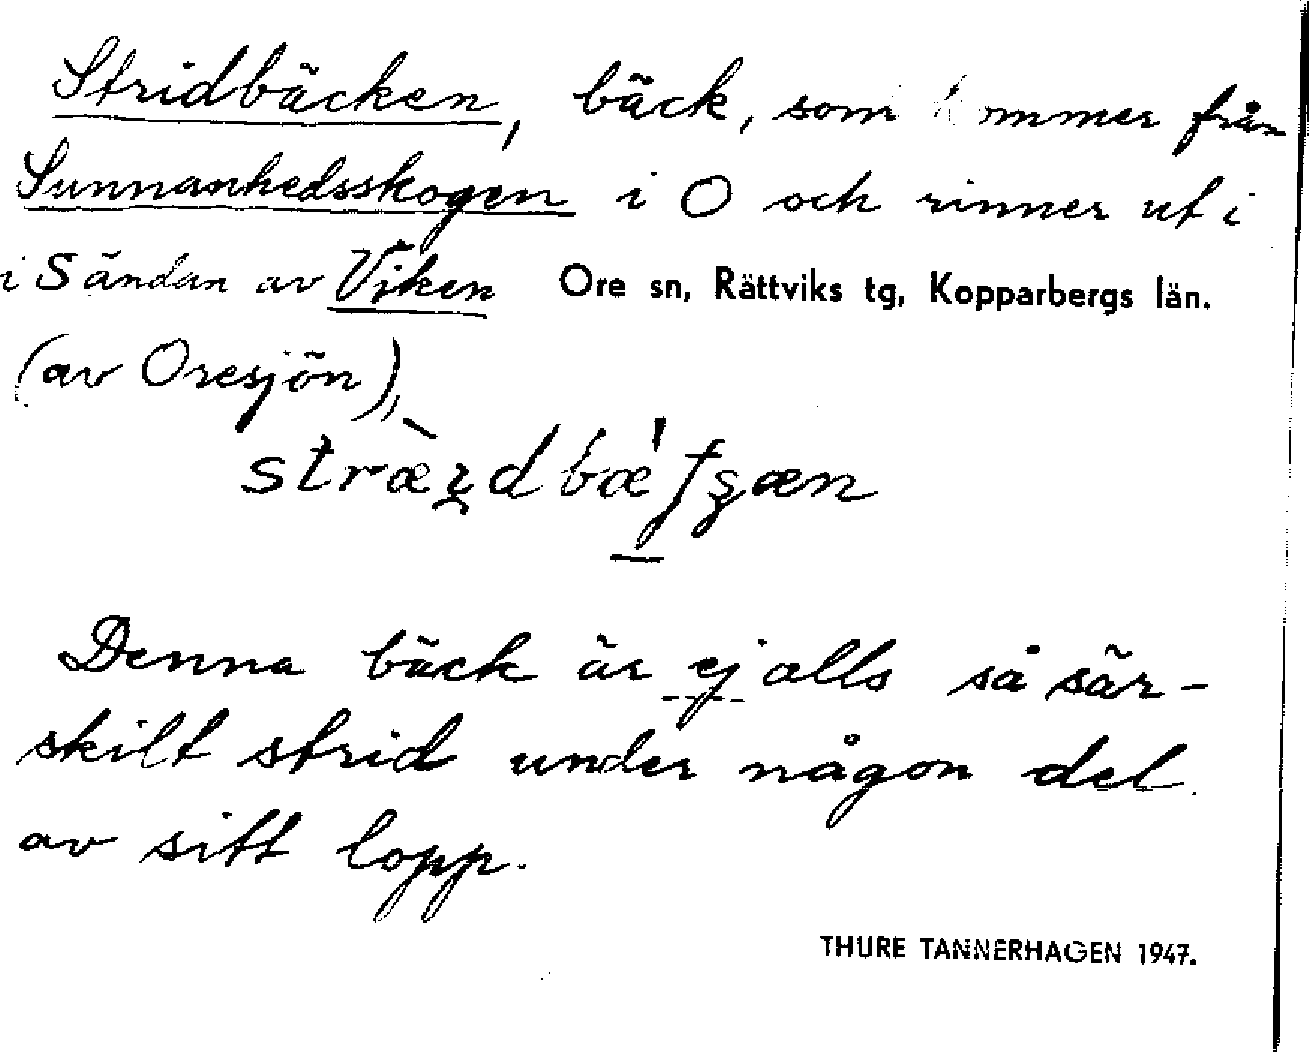 Stridbäcken, bäck, som kommer från
Sunnanhedsskogen i O och rinner ut i
i S ändan av Viken Ore sn, Rättviks tg, Kopparbergs län.
(av Oresjön),
Denna bäck är ej alls så sär-
skilt strid under någon del
av sitt lopp.
THURE TANNERHAGEN 1947.